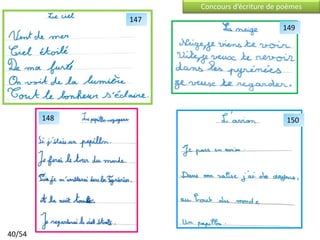 Concours d'écriture de poèmes
Le ciel
147
Vent de mer
Ciel étoilé
De ma
On voit de la lumière
Tout le bonheur s'éclaire.
La neige
149
Neige, je viens te voir
Vite, je veux te revoir
dans les pyrénées
je veux te regarder.
148
Le papillon voyageur
Si j'étais un papillon.
Je ferai le tour du monde
Puis je m'arrêterai dans les Pyrénées
et le soir
Je regarderai le ciel étoilé.
L'avion
150
Je pars en avion.
Dans ma valise j'ai des
au bout du monde
Un papillon.
40/54